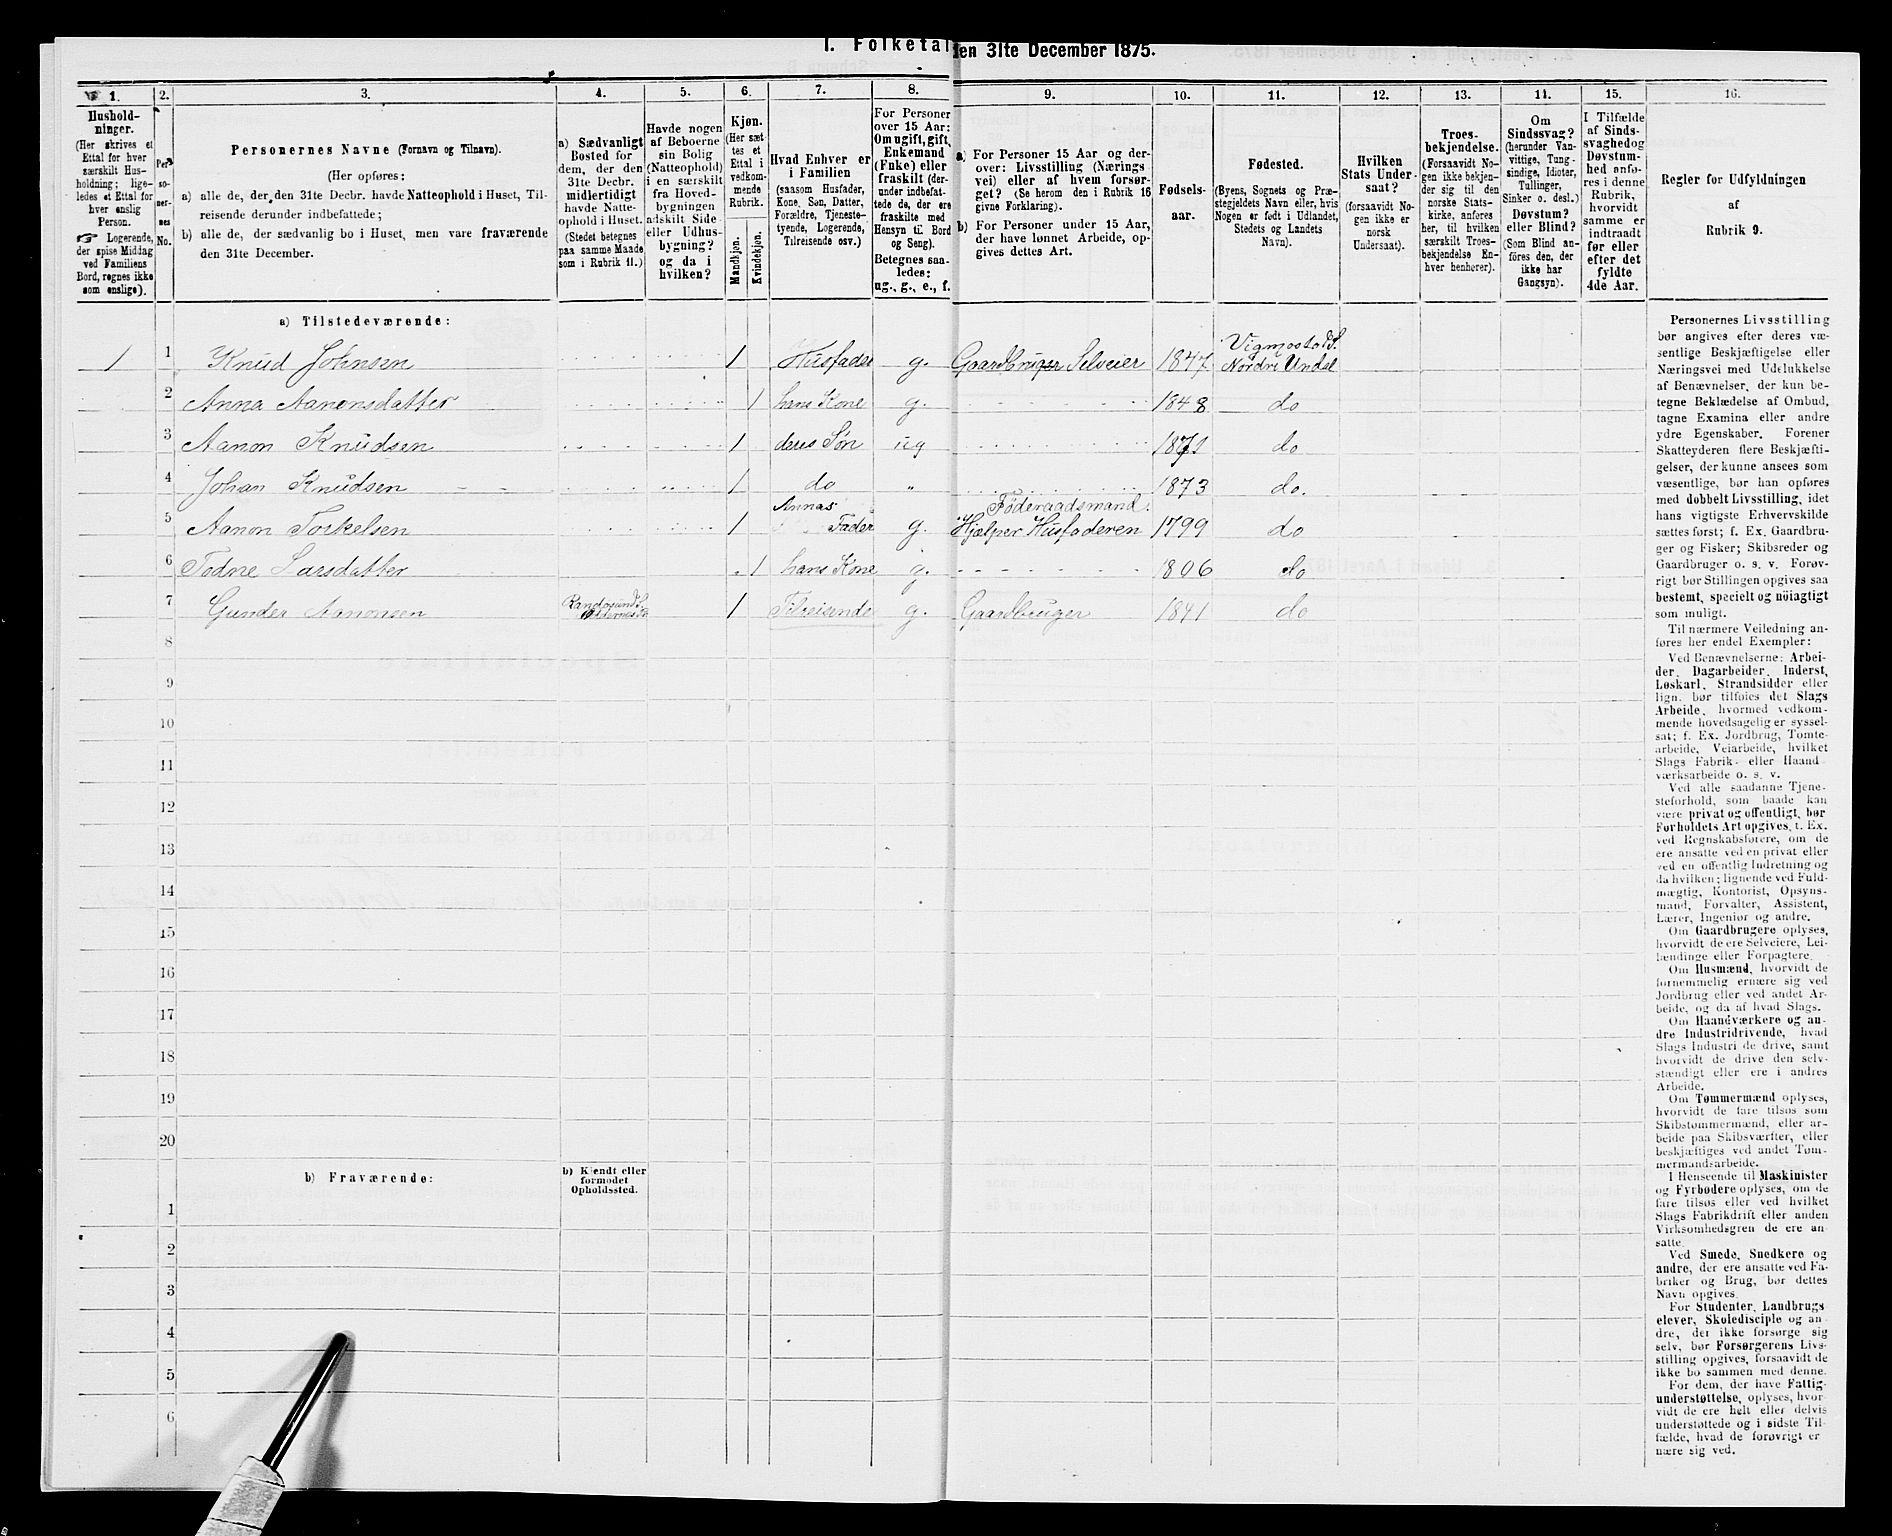 1. Folketal den 31te December 1875.
1. 2. 3. 4. 5. 6. 7. 8. 9. 10. 11. 12. 13. 14. 15. 16.
Hushold-
ninger.
(Her skrives et
Ettal for hver
særskilt Hus-
holdning; lige-
ledes et Ettal for
hver enslig
Person.
☞ Logerende,
der spise Middag
ved Familiens
Bord, regnes ikke
som enslige).
Per-
so-
ner-
nes
No.
Personernes Navne (Fornavn og Tilnavn).
(Her opføres:
a) alle de, der, den 31te Decbr. havde Natteophold i Huset, Til-
reisende derunder indbefattede;
b) alle de, der sædvanlig bo i Huset, men vare fraværende
den 31te December.
a) Sædvanligt
Bosted for
dem, der den
31te Decbr.
midlertidigt
havde Natte-
ophold i Huset.
(Stedet betegnes
paa samme Maade
som i Rubrik 11.)
Havde nogen
af Beboerne
sin Bolig
(Natteophold)
i en særskilt
fra Hoved-
bygningen
adskilt Side-
eller Udhus-
bygning?
og da i
hvilken?
Kjøn.
(Her sæt-
tes et
Ettal i
vedkom-
mende
Rubrik.
Mandkjøn.
Kvindekjøn.
Hvad Enhver er
i Familien
(saasom Husfader,
Kone, Søn, Datter,
Forældre, Tjeneste-
tyende, Logerende,
Tilreisende osv.)
For Personer
over 15 Aar:
Om ugift, gift,
Enkemand
(Enke) eller
fraskilt (der-
under indbefat-
tede de, der ere
fraskilte med
Hensyn til Bord
og Seng).
Betegnes saa-
ledes:
ug., g., e., f.
a) For Personer 15 Aar og der-
over: Livsstilling (Nærings-
vei) eller af hvem forsør-
get? (Se herom den i Rubrik 16
givne Forklaring).
b) For Personer under 15 Aar,
der have lønnet Arbeide, op-
gives dettes Art.
Fødsels-
aar.
Fødested.
(Byens, Sognets og Præ-
stegjeldets Navn eller, hvis
Nogen er født i Udlandet,
Stedets og Landets
Navn).
Hvilken
Stats Under-
saat?
(forsaavidt No-
gen ikke er
norsk
Undersaat).
Troes-
bekjendelse.
(Forsaavidt No-
gen ikke bekjen-
der sig til den
norske Stats-
kirke, anføres
her, til hvilken
særskilt Troes-
bekjendelse En-
hver henhører).
Om
Sindssvag?
(herunder Van-
vittige, Tung-
sindige, Idioter,
Tullinger,
Sinker o. desl.)
Døvstum?
eller Blind?
(Som Blind an-
føres den, der
ikke har
Gangsyn).
I Tilfælde
af Sinds-
svaghed og
Døvstum-
hed anfø-
res i denne
Rubrik,
hvorvidt
samme er
indtraadt
før eller
efter det
fyldte
4de Aar.
Regler for Udfyldningen
af
Rubrik 9.
a) Tilstedeværende:
1 1 Knud Johnsen 1 Husfader g. Gaardbruger Selveier 1847 Vigmostad S. Nordre Undal
2 Anna Aanonsdatter 1 hans Kone g. 1848 do
3 Aanon Knudsen 1 deres Søn ug 1871 do
4 Johan Knudsen 1 do " 1873 do.
5 Aanon Torkelsen 1 Annas Fader g. Føderaadsmand. Hjælper Husfaderen 1799 do
6 Todne Larsdatter 1 hans Kone g. 1806 do
7 Gunder Aanonsen Randøsund S. 1 Tilreisende g. Gaardbruger 1841 do
8
9
10
11
12
13
14
15
16
17
18
19
20
b) Fraværende:
b) Kjendt eller
formodet
Opholdssted.
1
2
3
4
5
6
Personernes Livsstilling
bør angives efter deres væ-
sentlige Beskjæftigelse eller
Næringsvei med Udelukkelse
af Benævnelser, der kun be-
tegne Beklædelse af Ombud,
tagne Examina eller andre
ydre Egenskaber. Forener
Skatteyderen flere Beskjæfti-
gelser, der kunne ansees som
væsentlige, bør han opføres
med dobbelt Livsstilling, idet
hans vigtigste Erhvervskilde
sættes først; f. Ex. Gaardbru-
ger og Fisker; Skibsreder og
Gaardbruger o. s. v. Forøv-
rigt bør Stillingen opgives saa
bestemt, specielt og nöiagtigt
som muligt.
Til nærmere Veiledning an-
føres her endel Exempler:
Ved Benævnelserne: Arbei-
der, Dagarbeider, Inderst,
Løskarl, Strandsidder eller
lign. bør tilføies det Slags
Arbeide, hvormed vedkom-
mende hovedsagelig er syssel-
sat; f. Ex. Jordbrug, Tomte-
arbeide, Veiarbeide, hvilket
Slags Fabrik- eller Haand-
værksarbeide o. s. v.
Ved alle saadanne Tjene-
steforhold, som baade kan
være privat og offentligt, bør
Forholdets Art opgives, t. Ex.
ved Regnskabsførere, om de
ere ansatte ved en privat eller
ved en offentlig Indretning og
da hvilken; lignende ved Fuld-
mægtig, Kontorist, Opsyns-
mand, Forvalter, Assistent,
Lærer, Ingeniør og andre.
Om Gaardbrugere oplyses,
hvorvidt de ere Selveiere, Lei-
lændinge eller Forpagtere.
Om Husmænd, hvorvidt de
fornemmelig ernære sig ved
Jordbrug eller ved andet Ar-
beide, og da af hvad Slags.
Om Haandværkere og an-
dre Industridrivende, hvad
Slags Industri de drive, samt
hvorvidt de drive den selv-
stændigt eller ere i andres
Arbeide.
Om Tømmermænd oplyses,
hvorvidt de fare tilsøs som
Skibstømmermænd, eller ar-
beide paa Skibsværfter, eller
beskjæftiges ved andet Tøm-
mermandsarbeide.
I Henseende til Maskinister
og Fyrbødere oplyses, om de
fare tilsøs eller ved hvilket
Slags Fabrikdrift eller anden
Virksomhedsgren de ere an-
satte.
Ved Smede, Snedkere og
andre, der ere ansatte ved Fa-
briker og Brug, bør dettes
Navn opgives.
For Studenter, Landbrugs-
elever, Skoledisciple og an-
dre, der ikke forsørge sig
selv, bør Forsørgerens Livs-
stilling opgives, forsaavidt de
ikke bo sammen med denne.
For dem, der have Fattig-
understøttelse, oplyses, hvor-
vidt de ere helt eller delvis
understøttede og i sidste Til-
fælde, hvad de forøvrigt er-
nære sig ved.